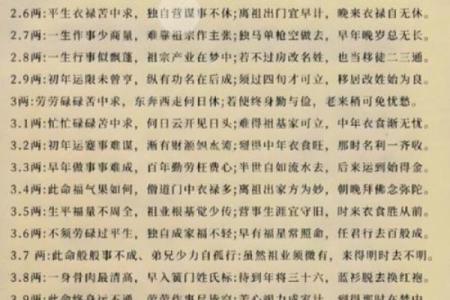 2.6两:平生衣禄苦中求，独自营谋事不休;离祖出门宜早计，晚来衣禄自无休。
2.7两:一生作事少商量，难靠祖宗作主张;独马单枪空做去，早年晚岁总无长。
2.8两:一生行事似飘蓬，祖宗产业在梦中;若不过房改名姓，也当移徒二三通。
2.9两:初年运限未曾亨，纵有功名在后成;须过四旬才可立，移居改姓始为良。
3两:劳劳碌碌苦中求，东奔西走何日休;若使终身勤与俭，老来稍可免忧愁。
3.1两:忙忙碌碌苦中求，何日云开见日头;难得祖基家可立，中年衣食渐无忧。
3.2两:初年运蹇事难谋，渐有财源如水流;到得中年衣食旺，那时名利一齐收。
3.3两:早年做事事难成，百年勤劳枉费心;半世自如流水去，后来运到始得金。
3.4两:此命福气果如何，僧道门中衣禄多;离祖出家方为妙，朝晚拜佛念弥陀。
3.5两:生平福量不周全，祖业根基觉少传;营事生涯宜守旧，时来衣食胜从前。
3.6两:不须劳碌过平生，独自成家福不轻;早有福星常照命，任君行去百般成。
3.7 两:此命般般事不成、弟兄少力自孤行:虽然祖业须微有，来得明时去不明。
3.8两:一身骨肉最清高，早入簧门姓氏标;待到年将三十六，蓝衫脱去换红袍。